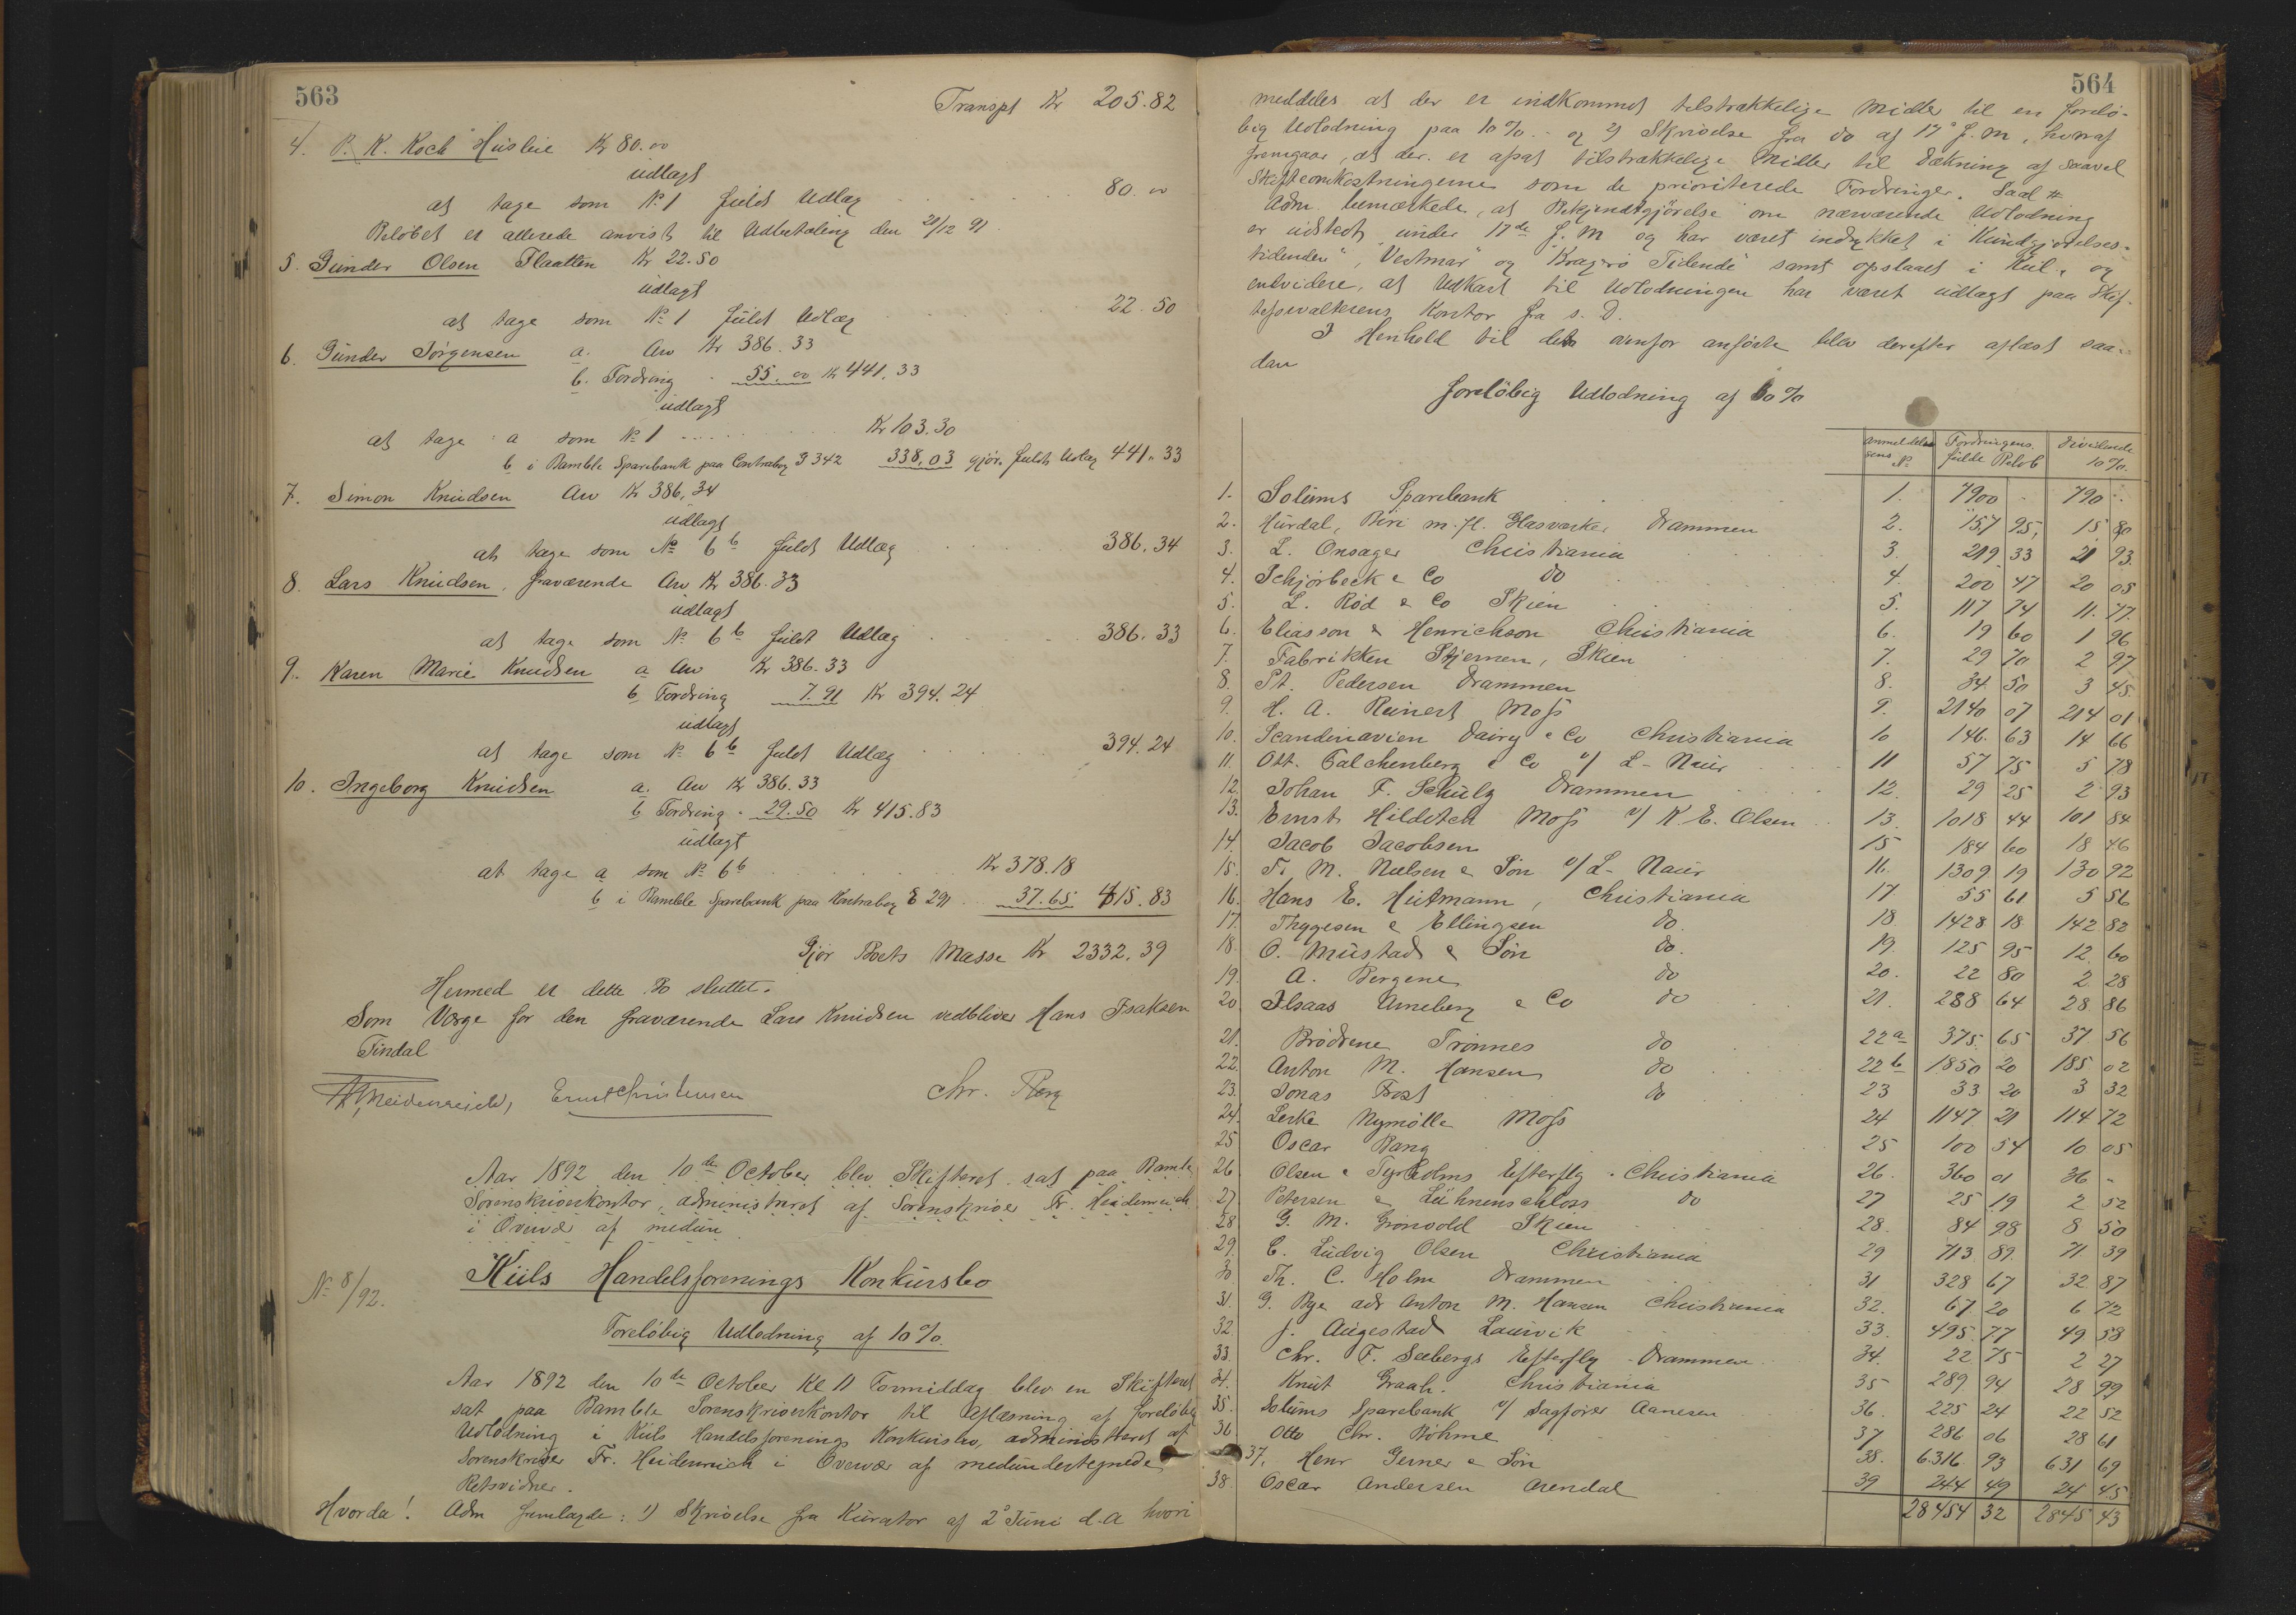 563
Transpt Kr 205.82
4. P. K. Koch Husleie Kr 80.00
udlagt
at tage som No 1 fuldt Udlæg 80.00
Beløbet er allerede anvist til Udbetaling den 21/12 91.
5. Gunder Olsen Flaatten Kr 22.50
udlagt
at tage som No 1 fuldt Udlæg 22.50
6. Gunder Jørgensen a. Arv Kr 386.33
b. Fordring 55.00 Kr 441.33
udlagt
at tage a som No 1 Kr 103.30
b i Bamble Sparebank paa Contrabog 3342 338,03 gjør fuldt Udlæg 441.33
7. Simon Knudsen Arv Kr 386,34
udlagt
at tage som No 6 b fuldt Udlæg 386.34
8. Lars Knudsen, fraværende Arv Kr 386.33
udlagt
at tage som No 6 b fuldt Udlæg 386.33
9. Karen Marie Knudsen a Arv Kr 386.33
b Fordring 7.91 Kr 394.24
udlagt
at tage som No 6 b fuldt Udlæg 394.24
10. Ingeborg Knudsen a. Arv Kr 386.33
b Fordring 29.50 Kr 415.83
udlagt
at tage a som No 6 b Kr 378.18
b i Bamble Sparebank paa Kontrabog E 291 37.65 415.83
Gjør Boets Masse Kr 2332.39
Hermed er dette Bo sluttet.
Som Værge for den fraværende Lars Knudsen vedbliver Hans Isaksen
Findal
Heidenreich, Ernst Christensen Chr. Berg
Aar 1892 den 10de October blev Skifteret sat paa Bamble
Sorenskriverkontor, administreret af Sorenskriver Fr. Heidenreich
i Overvær af medun
No 8/92. Kiils Handelsforenings Konkursbo
Foreløbig Udlodning af 10%
Aar 1892 den 10de October Kl 11 Formiddag blev en Skifteret
sat paa Bamble Sorenskriverkontor til Aflæsning af foreløbig
Udlodning i Kiils Handelsforenings Konkursbo, administreret af
Sorenskriver Fr. Heidenreich i Overvær af medundertegnede
Retsvidner.
Hvorda! Adm fremlagde: 1) Skrivelse fra Kurator af 2o Juni d.A hvori
564
meddeles at der er indkommet tilstrækkelige Midler til en foreløbig
big Udlodning paa 10%. og 2) Skrivelse fra do af 17o f.M, hvoraf
fremgaar, at der er afsat tilstrækkelige Midler til Dækning af saavel
Skifteomkostningerne som de prioriterede Fordringer.
Adm. bemærkede, at Bekjendtgjørelse om nærværende Udlodning
er udstedt under 17de f.M og har været indrykket i Kundgjørelses-
tidenden", "Vestmar" og "Kragerø Tidende" samt opslaaet i Kiil, og
endvidere, at Udkast til Udlodningen har været udlagt paa Skif-
teforvalterens Kontor fra s. D.
I Henhold til det ovenfor anførte blev derefter aflæst saa-
dan
foreløbig Udlodning af 10%
Anmeldelsens No Fordringens fulde Beløb Dividende 10%.
1. Solums Sparebank 1. 7900 - 790 -
2. Hurdal, Biri m. fl. Glasværker Drammen 2. 157 95 15 80
3. L. Onsager Christiania 3. 219 33 21 93
4. Schjørbeck & Co do 4. 200 47 20 05
5. L. Rød & Co Skien 5. 117 74 11 77
6. Eliasson & Henrichson Christiania 6. 19 60 1 96
7. Fabrikken Stjernen, Skien 7. 29 70 2 97
8. Pt. Pedersen Drammen 8. 34 50 3 45
9. H. A. Reinert Moss 9. 2140 07 214 01
10. Scandinavien Dairy & Co Christiania 10 146 63 14 66
11. Ott. Falchenberg & Co v/ L- Naur 11 57 75 5 78
12. Johan F. Schulz Drammen 12. 29 25 2 93
13. Ernst Hilditch Moss v/ K. E. Olsen 13. 1018 44 101 84
14. Jacob Jacobsen 15 184 60 18 46
15. Fr M. Nielsen & Søn v/ L- Naur 16. 1309 19 130 92
16. Hans E. Huitmann, Christiania 17 55 61 5 56
17. Thygesen & Ellingsen do 18. 1428 18 142 82
18. O. Mustad & Søn do. 19. 125 95 12 60
19. A. Bergene do 20. 22 80 2 28
20. Isaas Arneberg & Co do 21. 288 64 28 86
21. Brødrene Trønnes do 22a 375 65 37 56
22. Anton M. Hansen do 22b 1850 20 185 02
23. Jonas Frost do 23 33 20 3 32
24. Lerke Nymølle Moss 24 1147 21 114 72
25 Oscar Bang 25 100 54 10 05
26. Olsen & Tyrholms Efterflg. Christiania 26. 360 01 36 -
27 Petersen & Lühnenschloss do 27 25 19 2 52
28 G. M. Grønvold Skien 28. 84 98 8 50
29. C. Ludvig Olsen Christiania 29 713 89 71 39
30 Th. C. Holm Drammen 31 328 67 32 87
31. G. Bye adr Anton M. Hansen Christiania 32. 67 20 6 72
32. J. Augestad Laurvik 33. 495 77 49 58
33. Chr. F. Seebergs Efterflg. Drammen 34. 22 75 2 27
34. Knut Graah. Christiania 35 289 94 28 99
35. Solums Sparebank v/ Sagfører Aanesen 36. 225 24 22 52
36 Otto Chr. Bøhme 37 286 06 28 61
37. Henr Gerner & Søn 38. 6316 93 631 69
38. Oscar Andersen Arendal 39 244 49 24 45
28454 32 2845 43